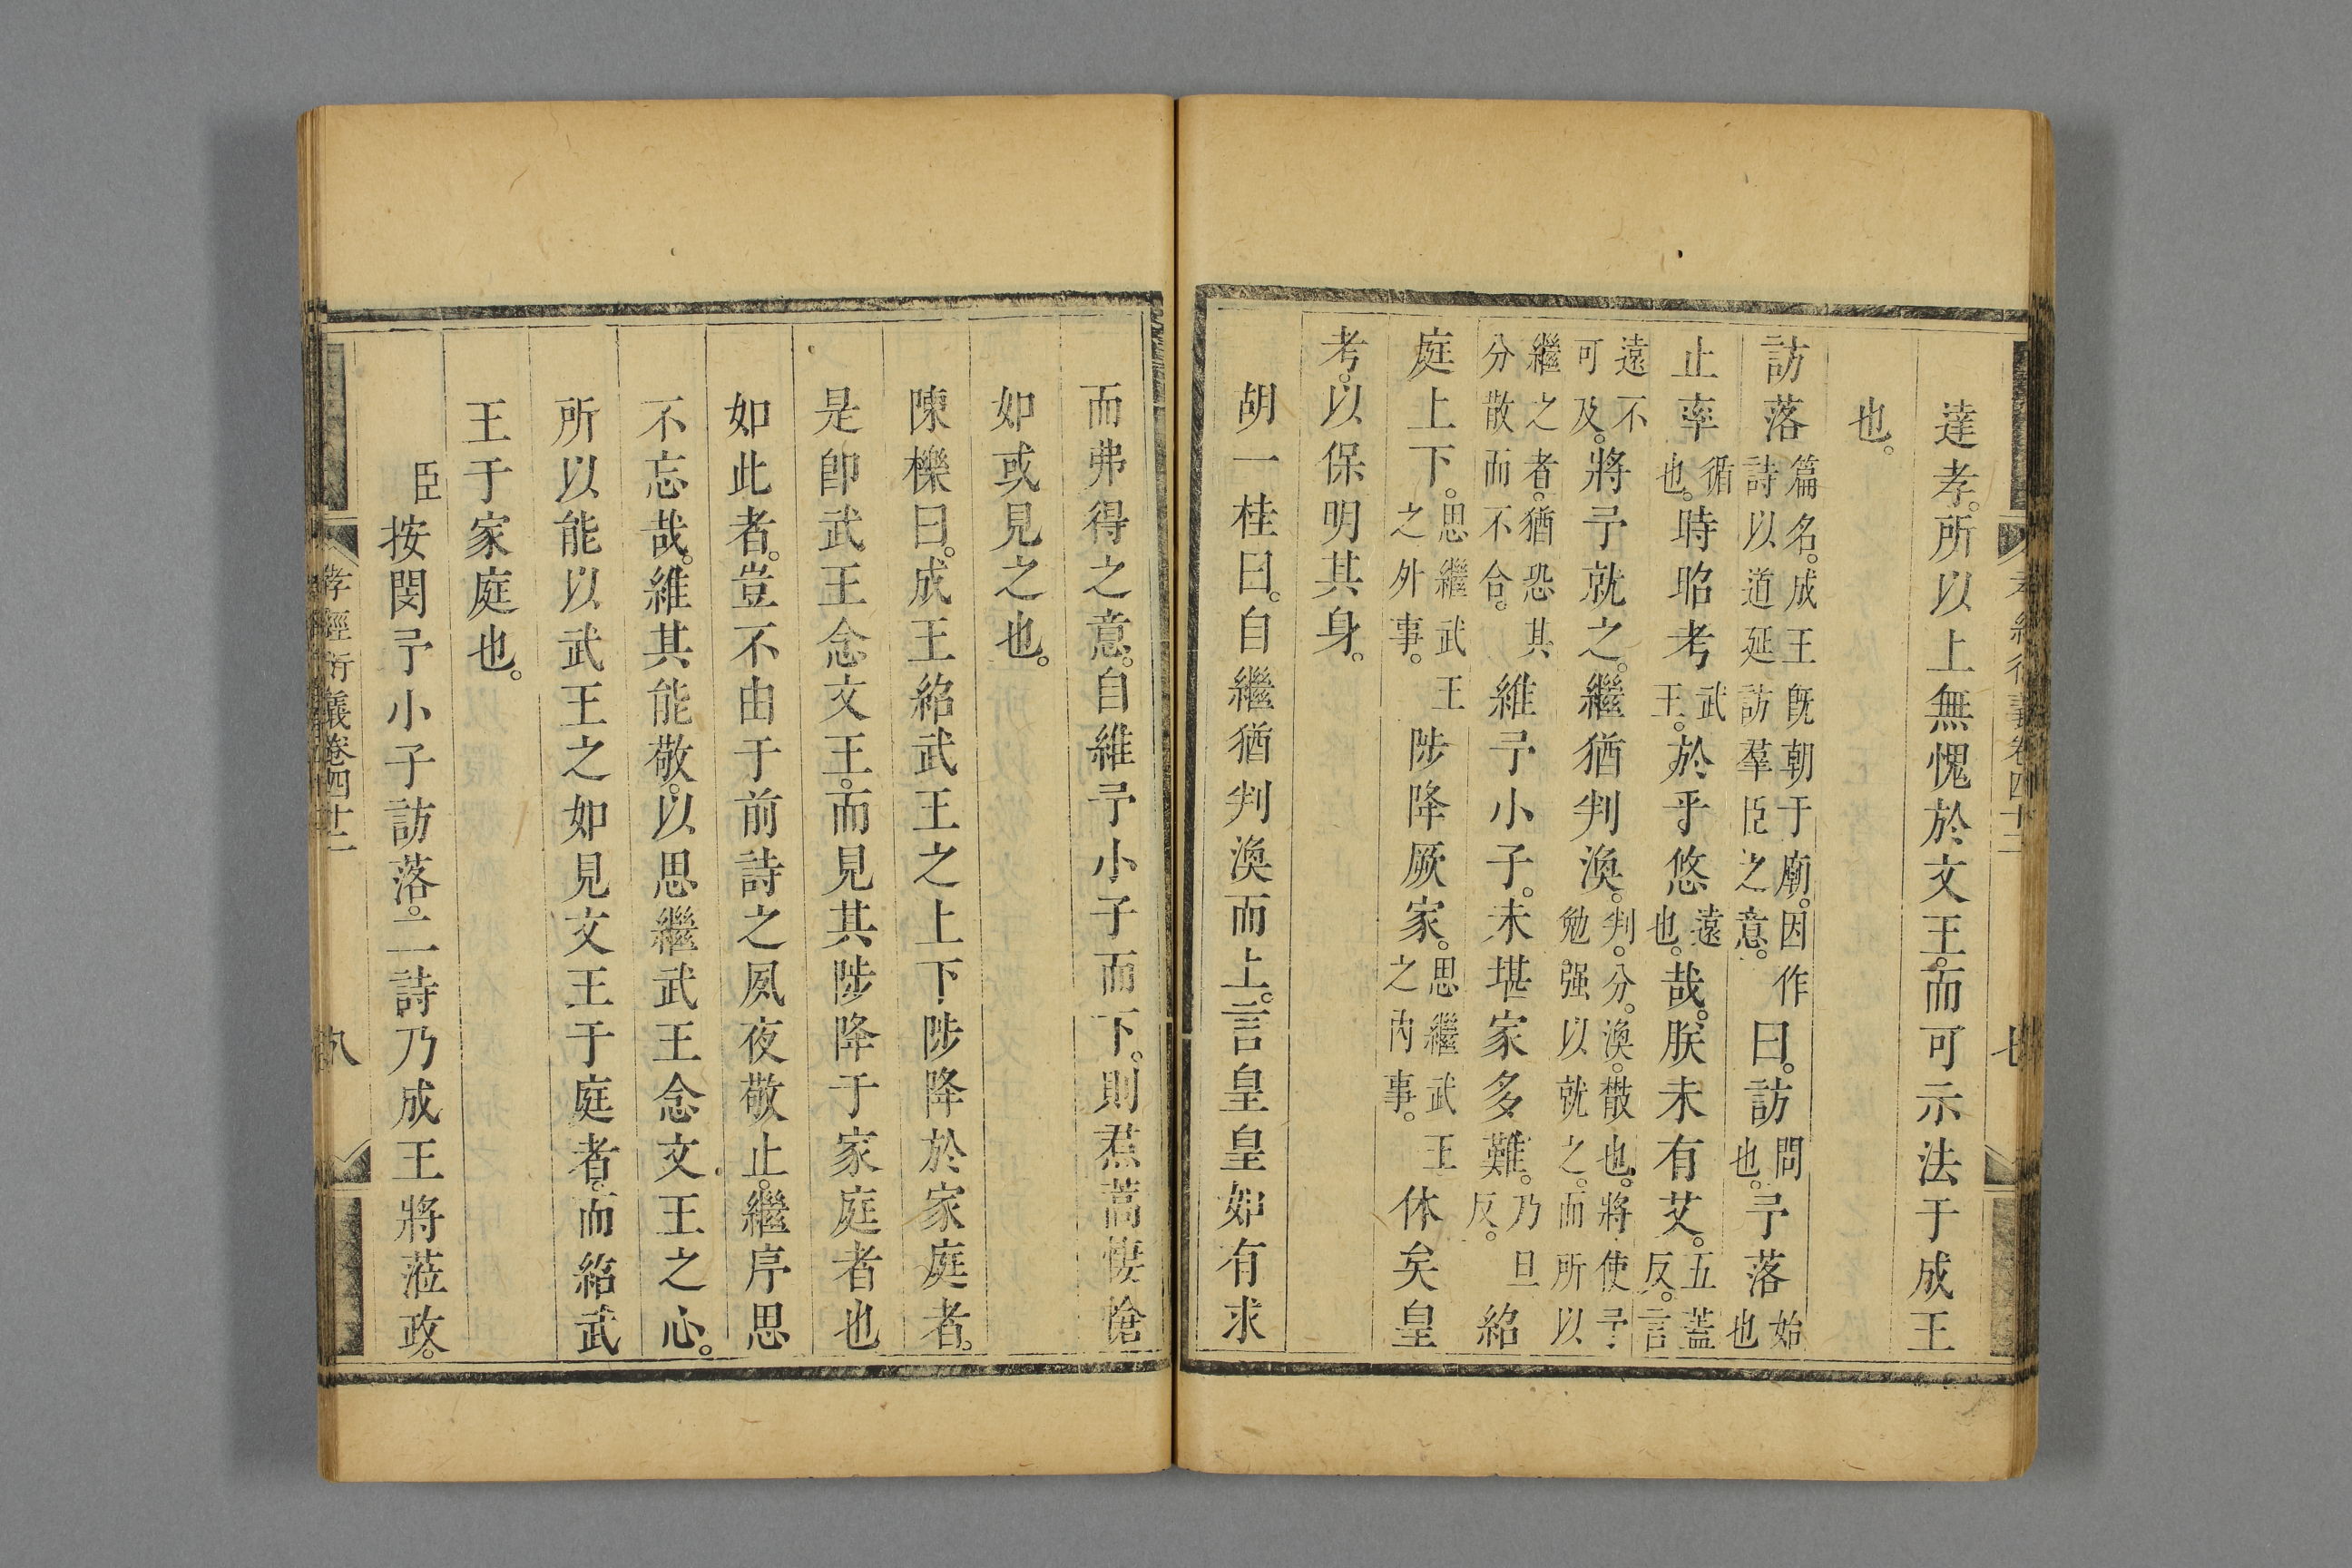 孝經衍義卷四十二　七
達孝。所以上無愧於文王。而可示法于成王
也。
訪落篇名。成王旣朝于廟。因作詩以道延訪羣臣之意。曰。訪問也。予落始也
止率循也。時昭考武王。於乎悠遠也。哉。朕未有艾。五蓋反。言
遠不可及。將予就之。繼猶判渙。判。分。渙。散也。將使予勉强以就之。而所以
繼之者。猶恐其分散而不合。維予小子。未堪家多難。乃旦反。紹
庭上下。思繼武王之外事。陟降厥家。思繼武王之內事。休矣皇
考。以保明其身。
胡一桂曰。自繼猶判渙而上。言皇皇如有求
而弗得之意。自維予小子而下。則焄蒿悽愴
如或見之也。
陳櫟曰。成王紹武王之上下陟降於家庭者。
是卽武王念文王。而見其陟降于家庭者也
如此者。豈不由于前詩之夙夜敬止。繼序思
不忘哉。維其能敬。以思繼武王念文王之心。
所以能以武王之如見文王于庭者。而紹武
王于家庭也。
臣按閔予小子訪落。二詩乃成王將蒞政。
孝經衍義卷四十二　八